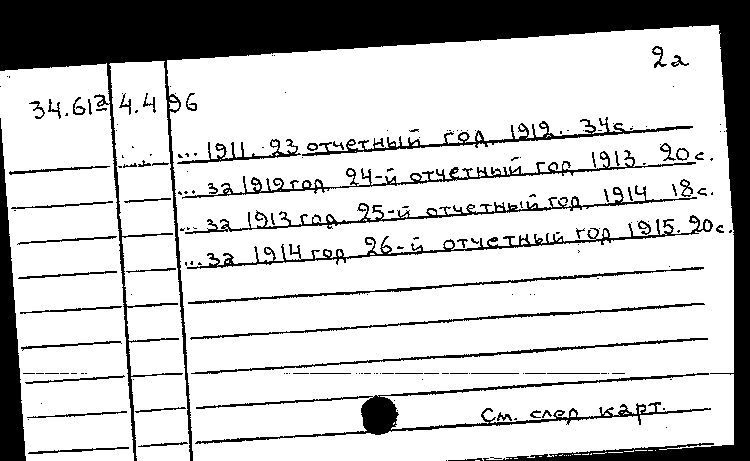 2а
34.61а 4.4 96
... 1911. 23 отчетный год. 1912. 34с.
... за 1912 год. 24-й отчетный год 1913. 20с.
... за 1913 год. 25-й отчетный год. 1914. 18с.
... за 1914 год 26-й отчетный год 1915. 20с.
См. след карт.